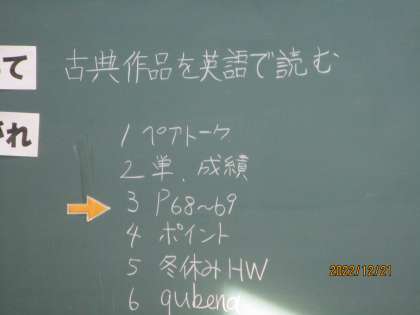 古典作品を英語で読む
て
がれ
1 ペアトーク
2 単、成績
3 P68~69
4 ポイント
5 冬休みHW
6 qubena
2022/12/21